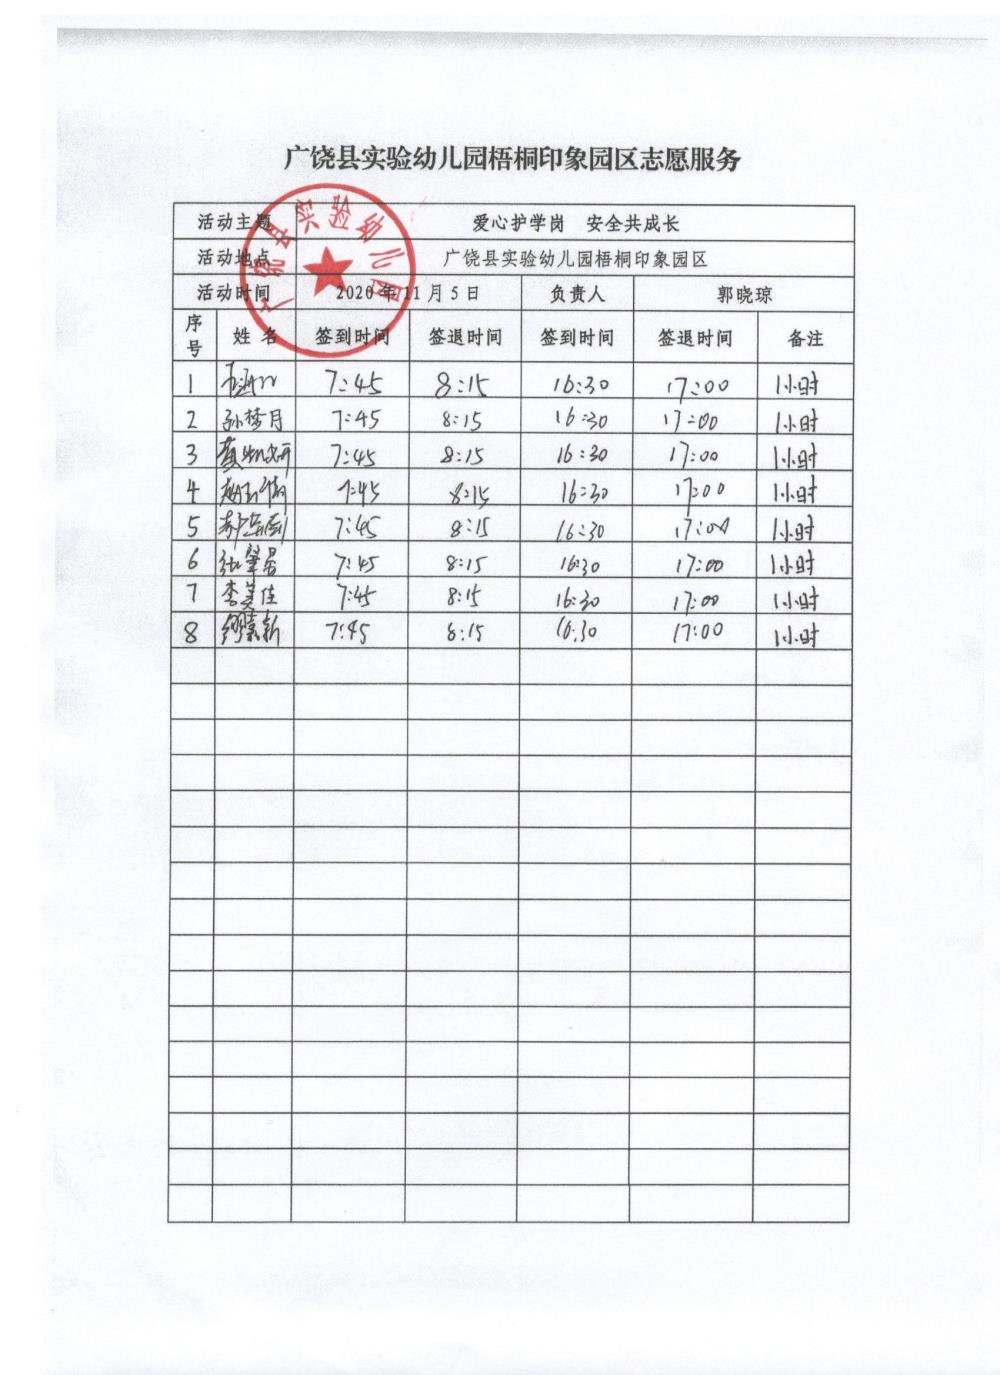 广饶县实验幼儿园梧桐印象园区志愿服务
活动主题 爱心护学岗 安全共成长
活动地点 广饶县实验幼儿园梧桐印象园区
活动时间 2020 年 11 月 5 日 负责人 郭晓琼
序号 姓 名 签到时间 签退时间 签到时间 签退时间 备注
广饶县实验幼儿园
1 7:45 8:15 16:30 17:00 1小时
2 孙梦月 7:45 8:15 16:30 17:00 1小时
3 7:45 8:15 16:30 17:00 1小时
4 7:45 8:15 16:30 17:00 1小时
5 7:45 8:15 16:30 17:00 1小时
6 7:45 8:15 16:30 17:00 1小时
7 李美佳 7:45 8:15 16:30 17:00 1小时
8 7:45 8:15 16:30 17:00 1小时